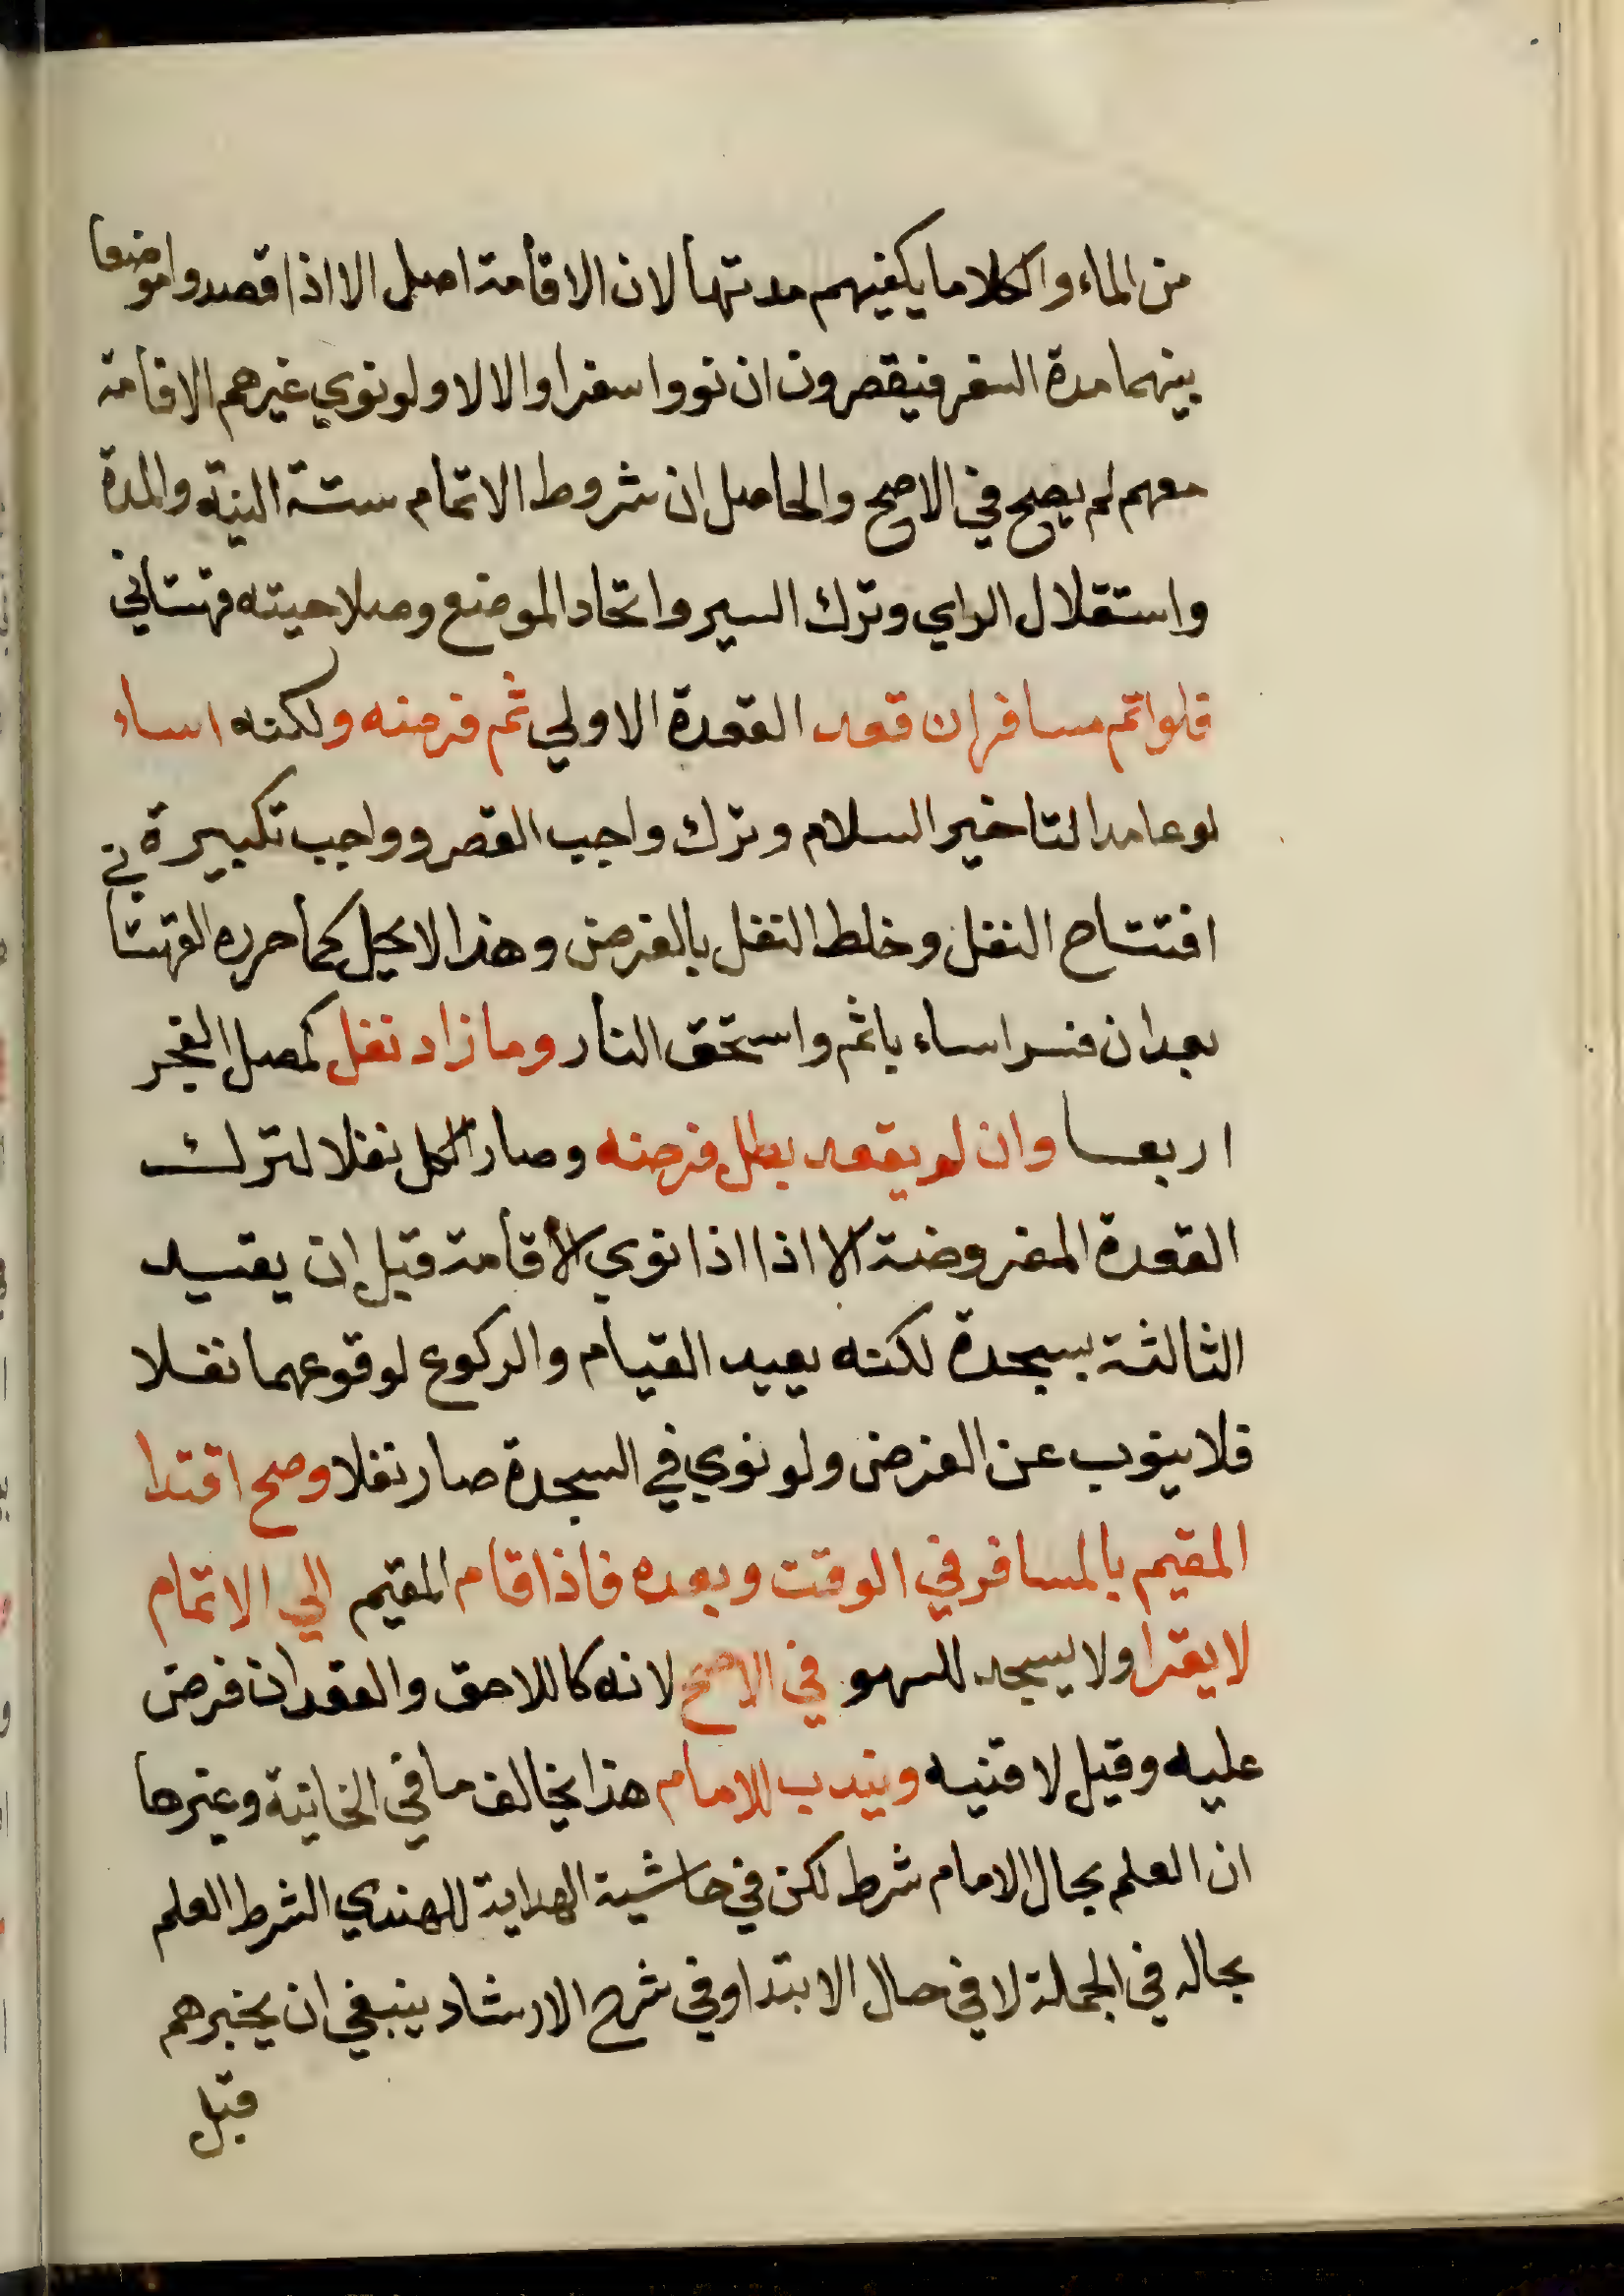 من الماء والكلا ما يكفيهم مدتها لان الاقامة اصل الا اذا قصدوا موضعا
بينهما مدة السفر فيقصرون ان نووا سفرا والا لا ولو نوي غيرهم الاقامة
معهم لم يصح في الاصح والحاصل ان شروط الاتمام ستة النية والمدة
واستقلال الراي وترك السير واتحاد الموضع وصلاحيته قهستاني
فلو اتم مسافر ان قعد القعدة الاولي تم فرضه ولكنه اساء
لو عامدا لتاخير السلام وترك واجب القصر وواجب تكبيرة في
افتتاح النفل وخلط النفل بالفرض وهذا لا يحل كما حرره القهستا
بعد ان فسر اساء باثم واستحق النار وما زاد نفل كمصل الفجر
اربعا وان لم يقعد بطل فرضه وصار الكل نفلا لترك
القعدة المفروضة الا اذا اذا نوي الاقامة قبل ان يقيد
الثالثة بسجدة لكنه يعيد القيام والركوع لوقوعهما نفلا
فلا ينوب عن الفرض ولو نوي في السجدة صار نفلا وصح اقتدا
المقيم بالمسافر في الوقت وبعده فاذا قام المقيم الي الاتمام
لا يقرا ولا يسجد للسهو في الاصح لانه كاللاحق والقعدان فرض
عليه وقيل لا قنيه ويندب للامام هذا يخالف ما في الخانية وغيرها
ان العلم بحال الامام شرط لكن في حاشية الهداية للهندي الشرط العلم
بحاله في الجملة لا في حال الابتدا وفي شرح الارشاد ينبغي ان يخبرهم
قبل